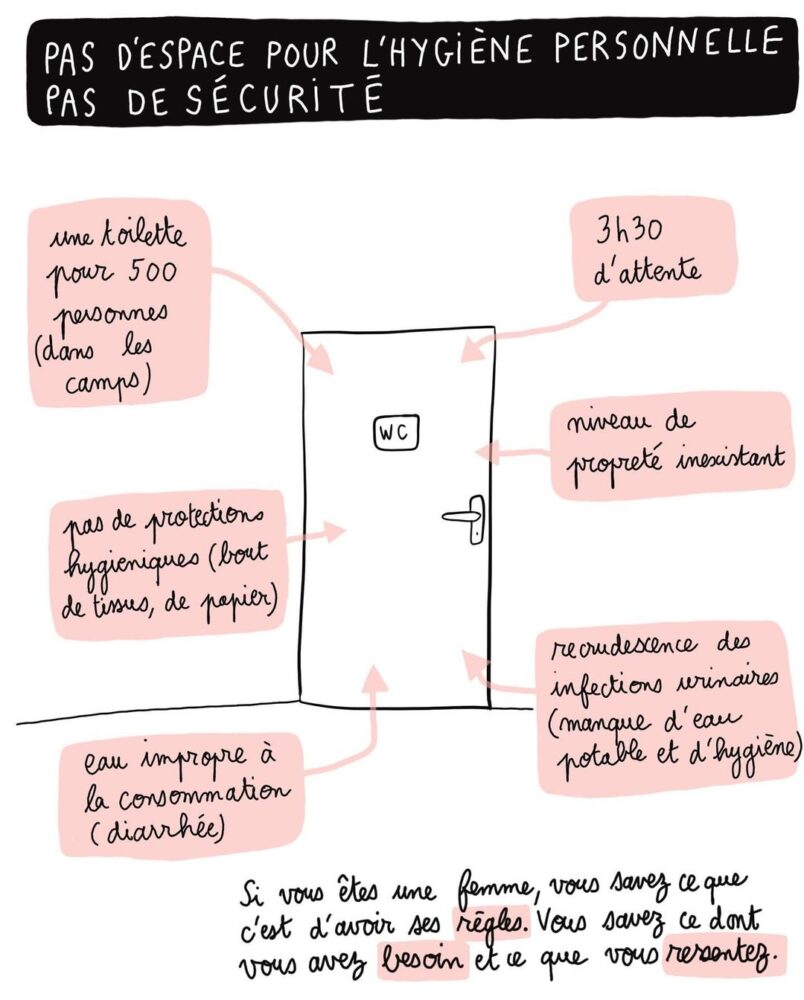 PAS D'ESPACE POUR L'HYGIÈNE PERSONNELLE
PAS DE SÉCURITÉ
une toilette
pour 500
personnes
(dans les
camps)
3h30
d'attente
WC
niveau de
propreté inexistant
pas de protections
hygieniques (bout
de tissus, de papier)
recrudescence des
infections urinaires
(manque d'eau
potable et d'hygiène)
eau impropre à
la consommation
(diarrhée)
Si vous êtes une femme, vous savez ce que
c'est d'avoir ses règles. Vous savez ce dont
vous avez besoin et ce que vous ressentez.